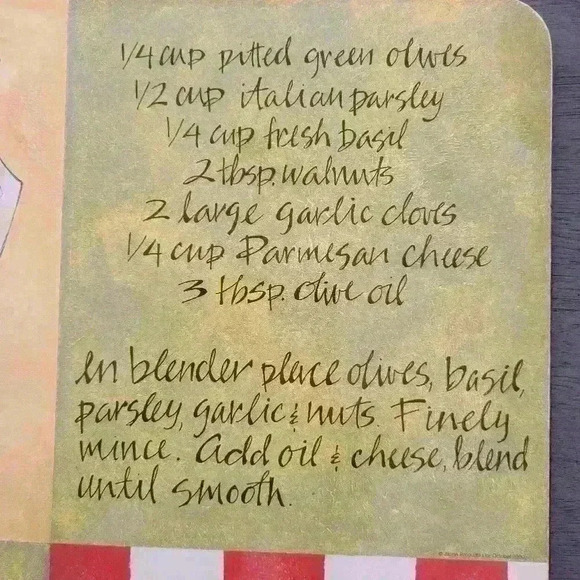 1/4 cup pitted green olives
1/2 cup italian parsley
1/4 cup fresh basil
2 tbsp. walnuts
2 large garlic cloves
1/4 cup Parmesan cheese
3 tbsp. olive oil
In blender place olives, basil,
parsley, garlic & nuts. Finely
mince. Add oil & cheese, blend
until smooth.